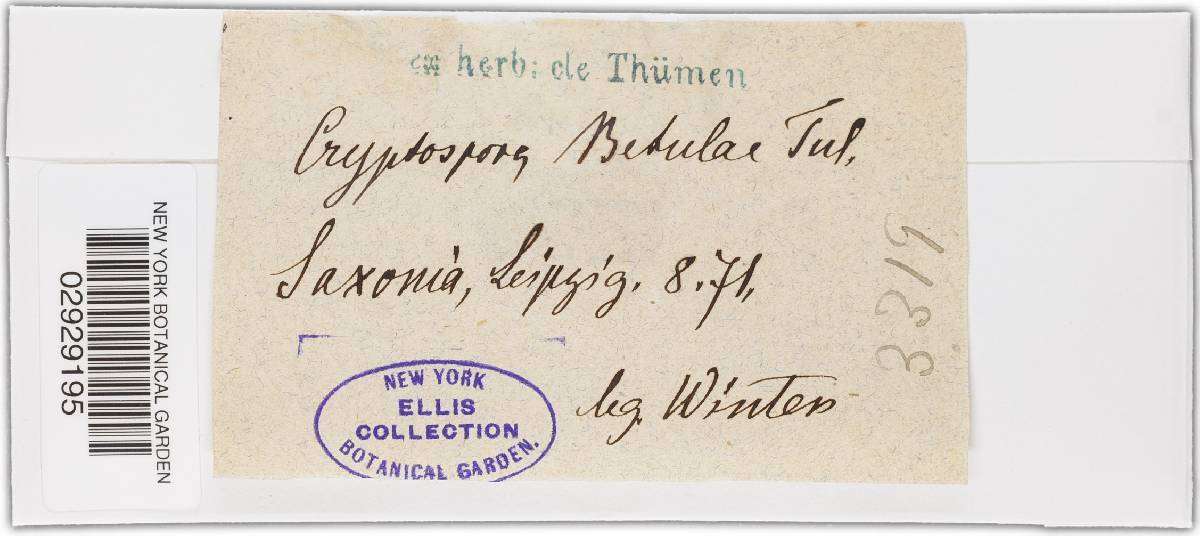 ex herb: de Thümen
Cryptospora Betulae Tul.
Saxonia, Leipzig. 8.71.
leg. Winter
3319
NEW YORK
ELLIS
COLLECTION
BOTANICAL GARDEN.
NEW YORK BOTANICAL GARDEN
02929195